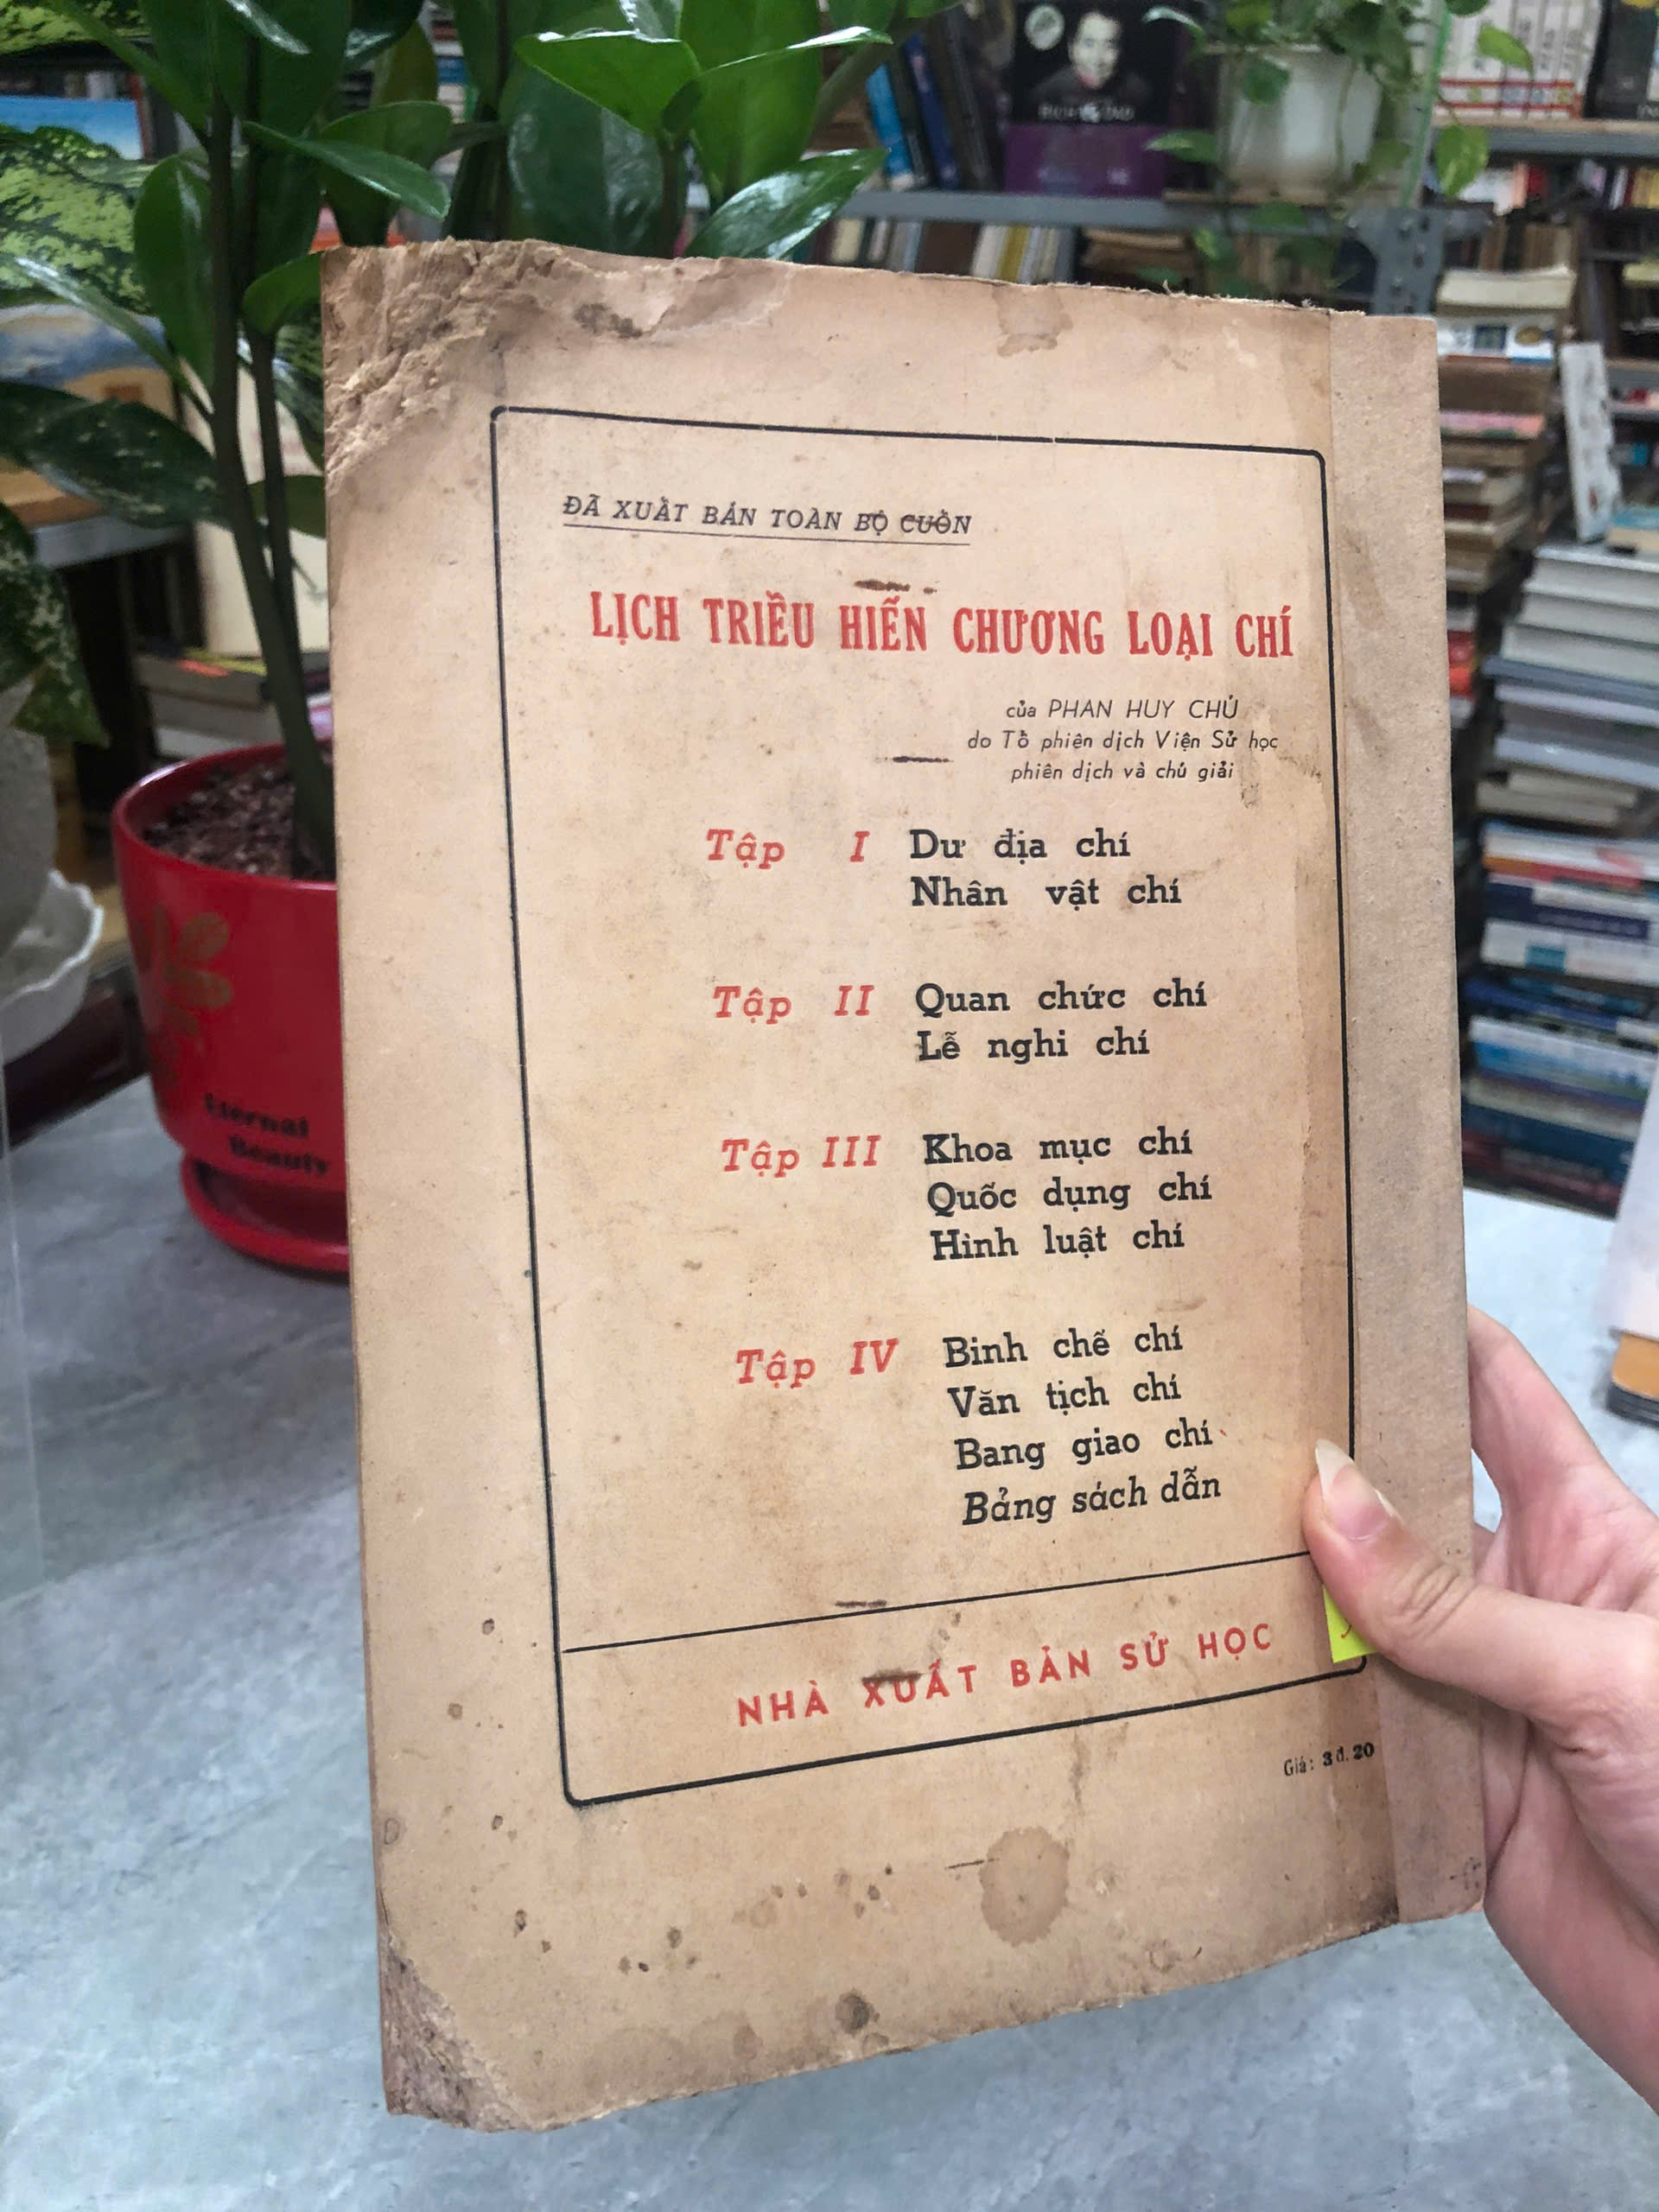 ĐÃ XUẤT BẢN TOÀN BỘ CUỐN
LỊCH TRIỀU HIẾN CHƯƠNG LOẠI CHÍ
của PHAN HUY CHÚ
do Tổ phiên dịch Viện Sử học
phiên dịch và chú giải
Tập I Dư địa chí
Nhân vật chí
Tập II Quan chức chí
Lễ nghi chí
Tập III Khoa mục chí
Quốc dụng chí
Hình luật chí
Tập IV Binh chế chí
Văn tịch chí
Bang giao chí
Bảng sách dẫn
NHÀ XUẤT BẢN SỬ HỌC
Giá: 3đ.20
Eternal
Beauty